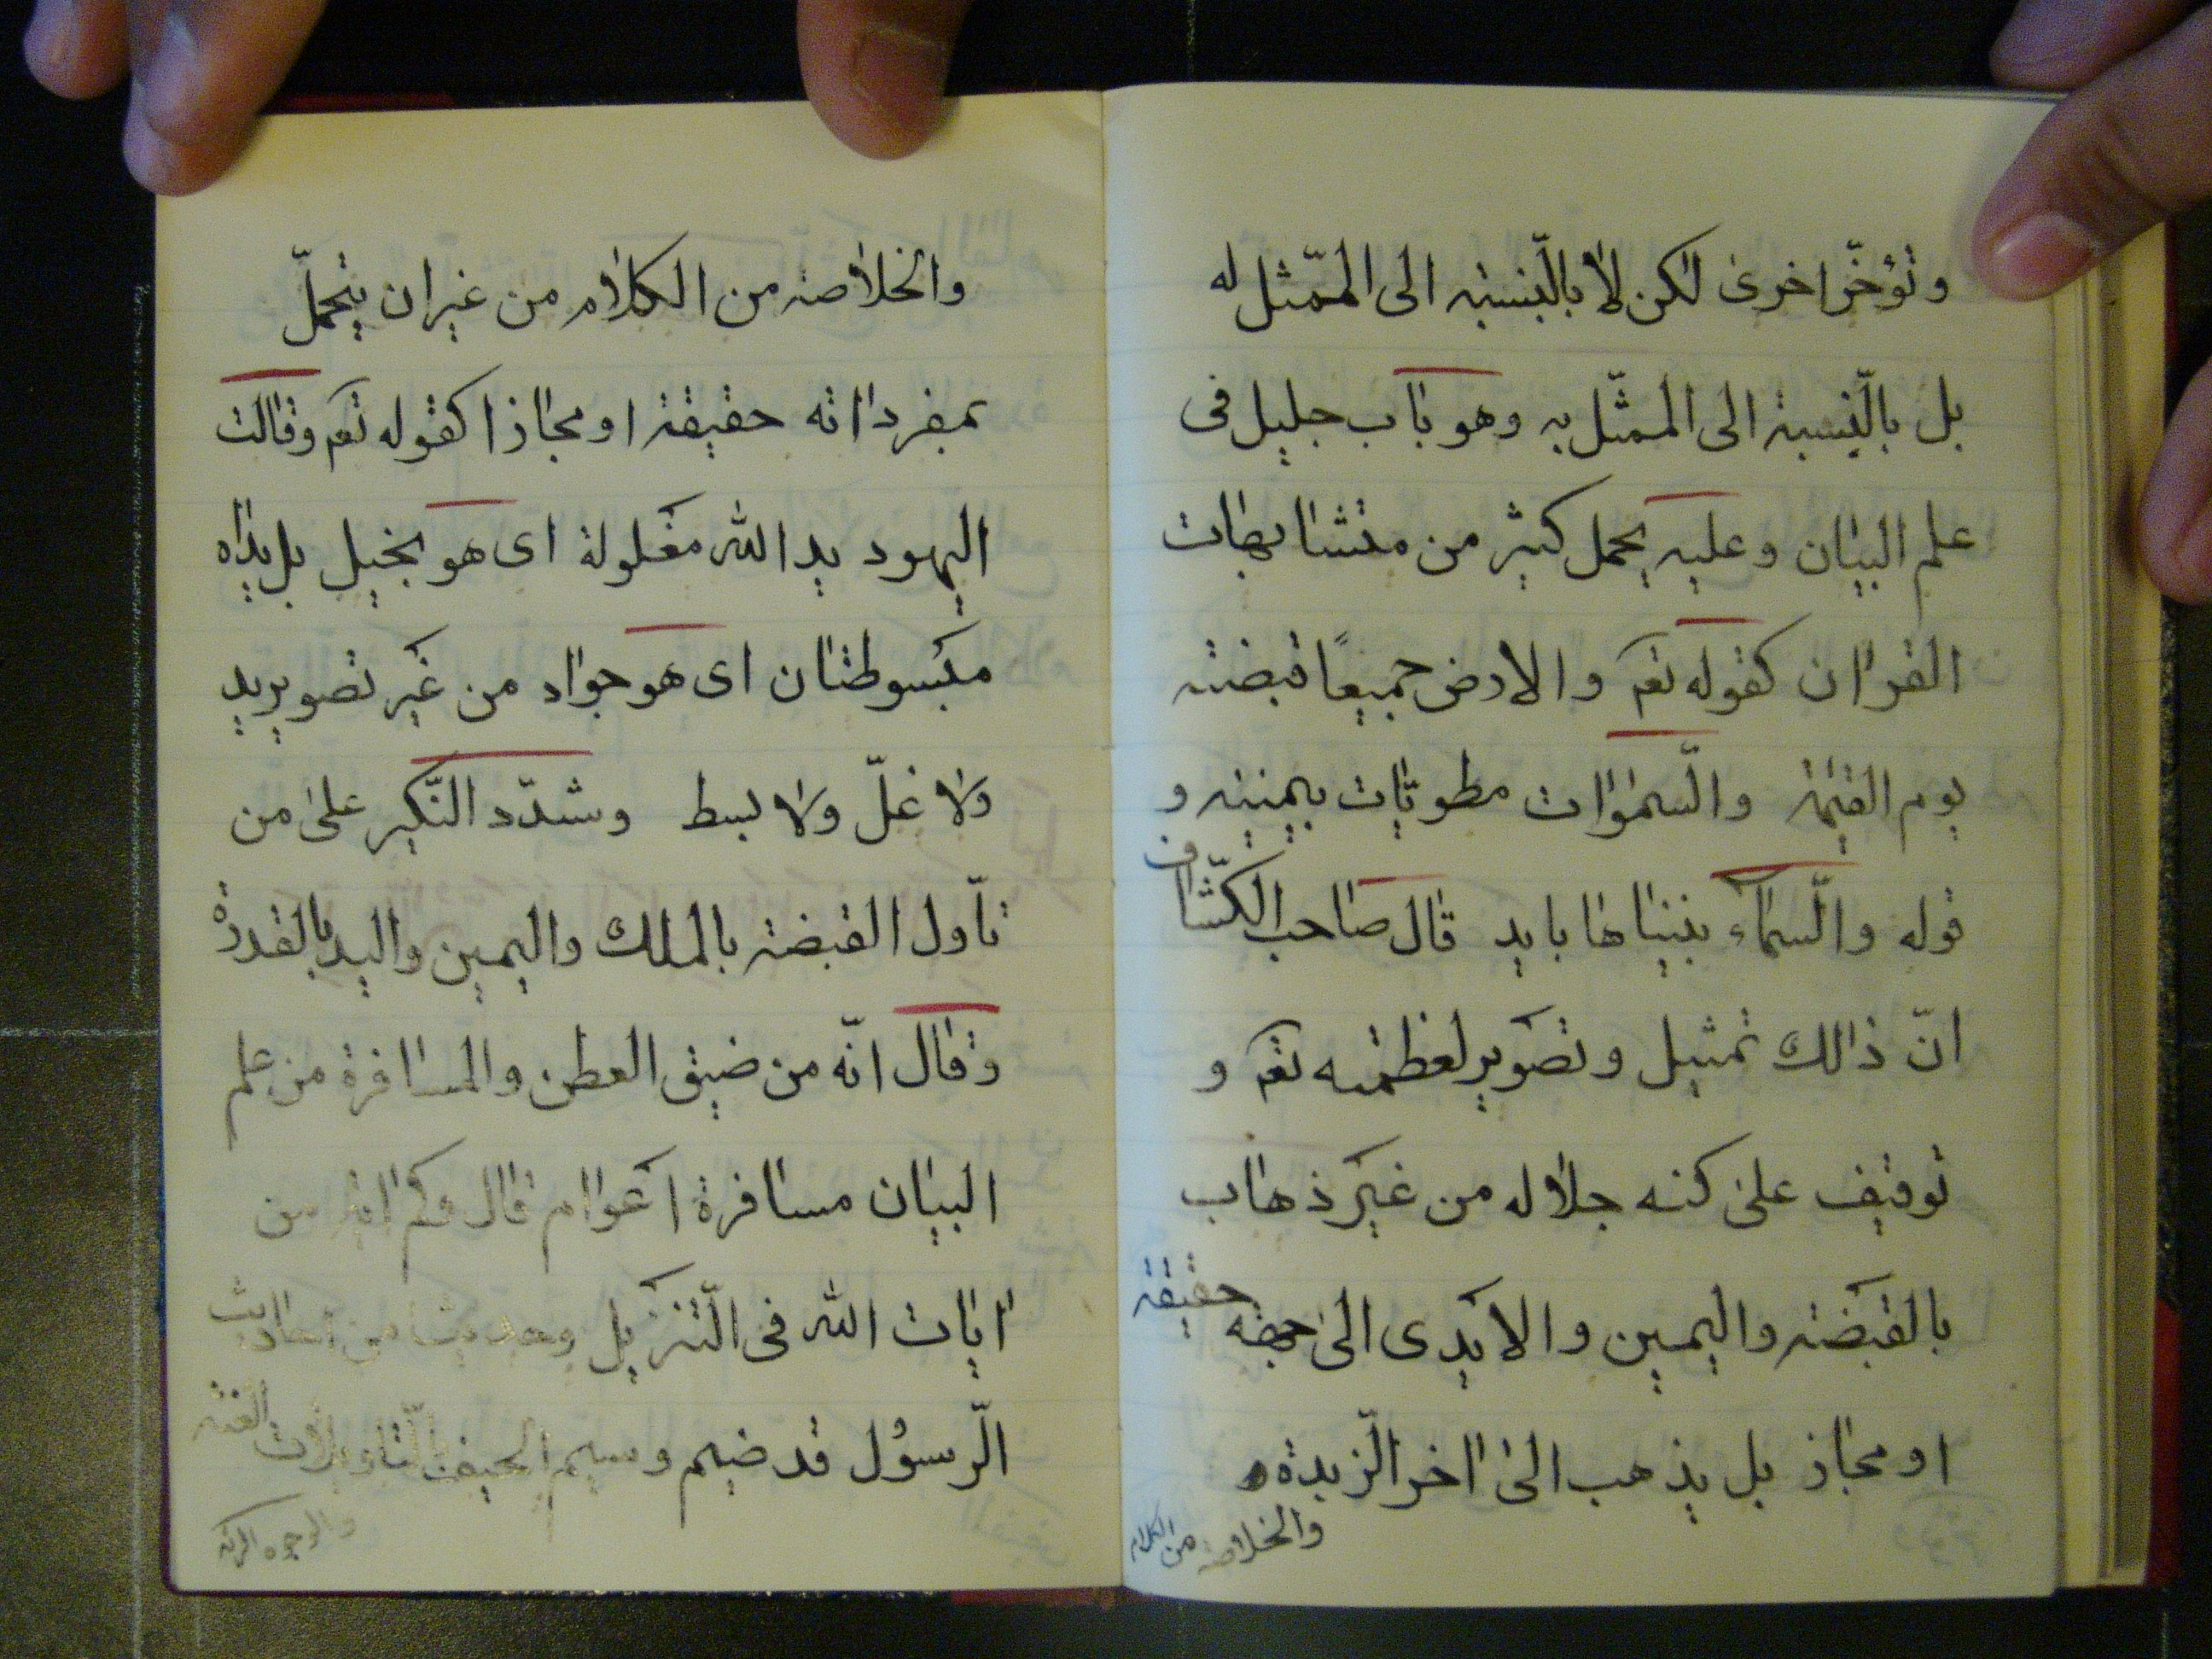 وتؤخّر اخرى لكن لا بالّنسبة الى الممّثل له
بل بالّنسبة الى الممثّل به وهو باب جليل فى
علم البيان وعليه يحمل كثير من متشابهات
القراان كقوله تعم والارض جميعًا قبضته
يوم القيٰمة والّسمٰوات مطويّات بيمينه و
قوله والّسمآء بنيناها بايد قال صاحب الكشّاف
انّ ذالك تمثيل وتصوير لعظمته تعم و
توقيف علىٰ كنه جلاله من غير ذهاب
بالقبضة واليمين والايدى الىٰ جهة حقيقة
او مجاز بل يذهب الىٰ ااخر الّزبدة
والخلاصة من الكلام
والخلاصة من الكلام من غير ان يتحمّل
بمفرداته حقيقة او مجازا كقوله تعم وقالت
اليهود يد الله مغلولة اى هو بخيل بل يداه
مبسوطتان اى هو جواد من غير تصوير يد
ولا غلّ ولا بسط وشدّد النّكير علىٰ من
تأوّل القبضة بالملك واليمين واليد بالقدرة
وقال انّه من ضيق العطن والمسافرة من علم
البيان مسافرة اعوام قال وكم ااية من
اايات الله فى الّتنزيل وحديث من احاديث
الّرسول قد ضيم وسيم الخيف بالّتاويلات الغثة
والوجوه الرثة